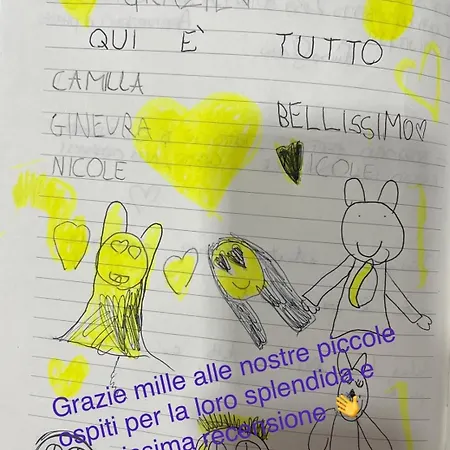 GRAZIE
QUI È TUTTO
CAMILLA
GINEVRA BELLISSIMO
NICOLE
Grazie mille alle nostre piccole
ospiti per la loro splendida e
recensione